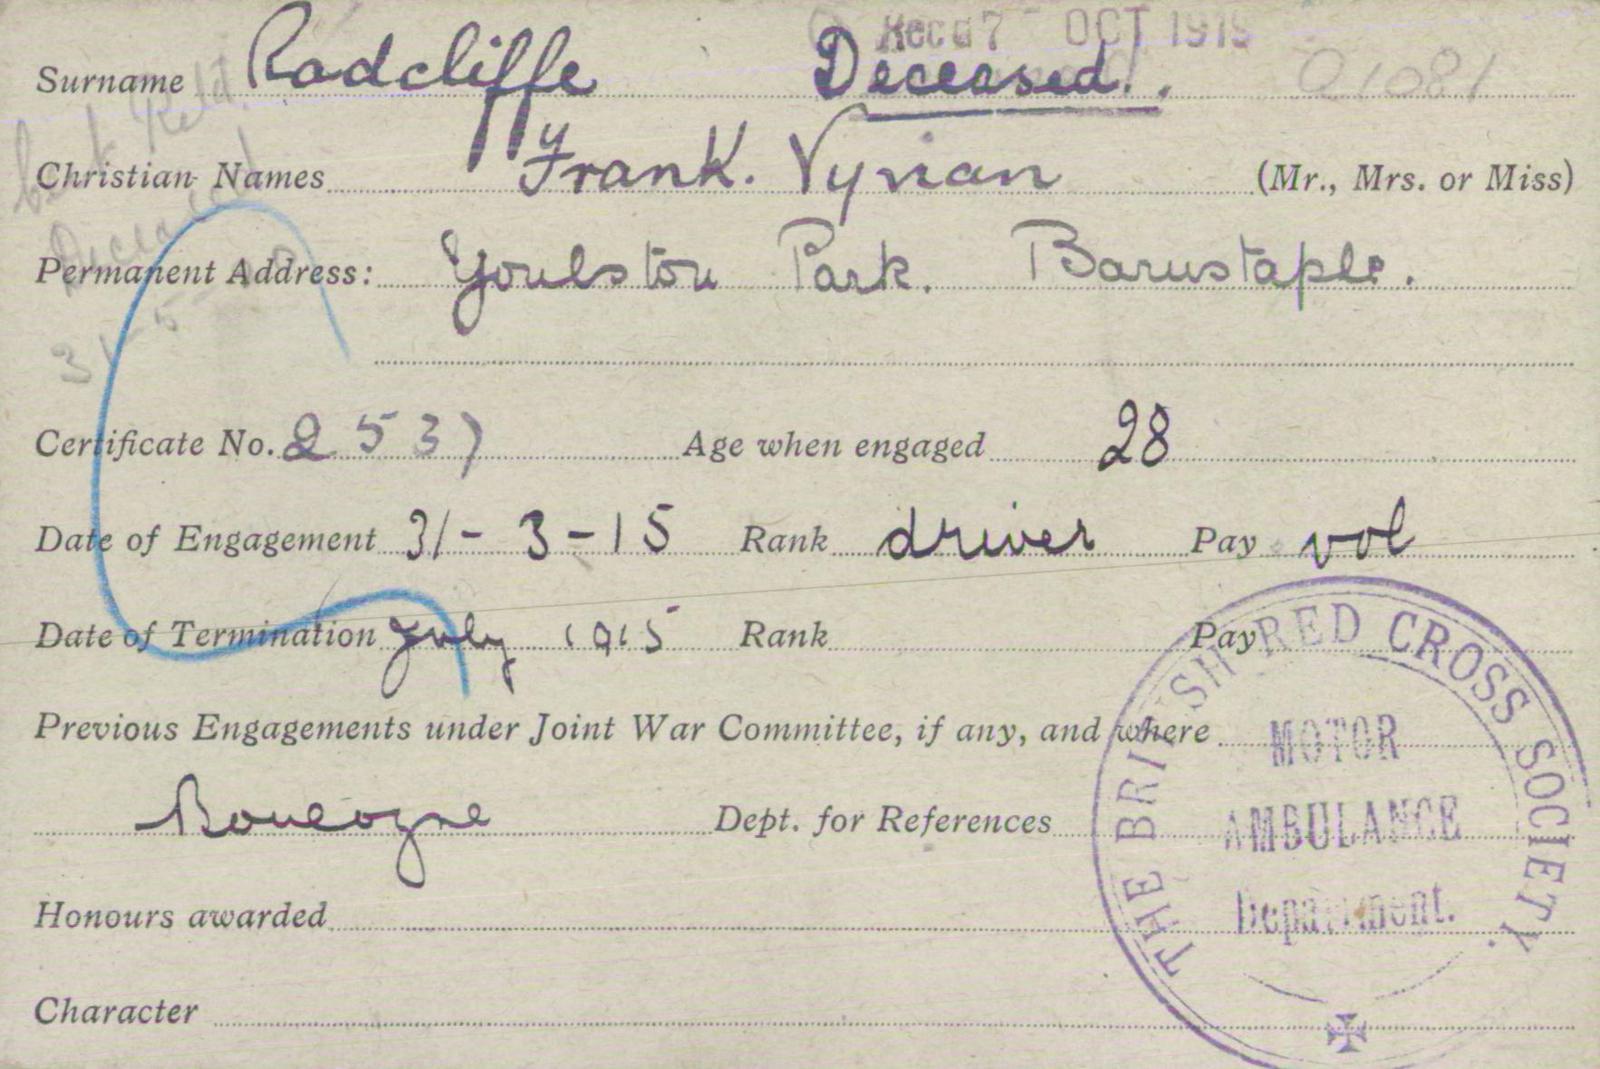 Rec'd 7 OCT 1919
Surname Radcliffe Deceased.
Christian Names Frank. Vyvian (Mr., Mrs. or Miss)
Permanent Address: Youlston Park. Barnstaple.
Certificate No. 2537 Age when engaged 28
Date of Engagement 31-3-15 Rank driver Pay vol
Date of Termination July 1915 Rank Pay
Previous Engagements under Joint War Committee, if any, and where
Boulogne Dept. for References
Honours awarded
Character
THE BRITISH RED CROSS SOCIETY.
MOTOR
AMBULANCE
Department.
Deceased